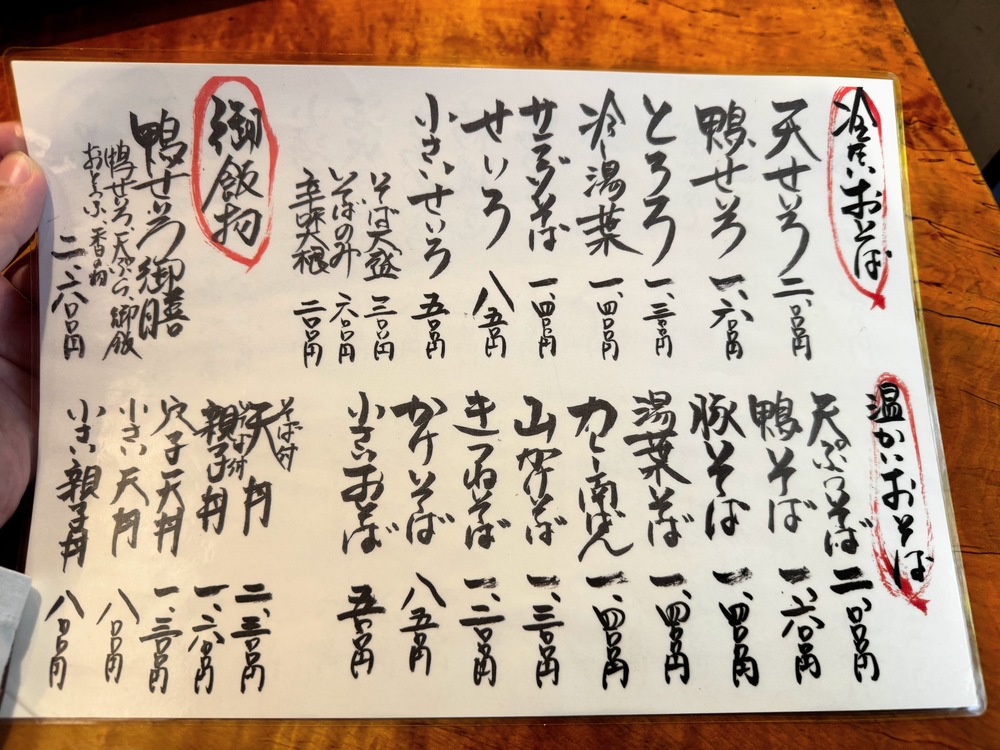 冷たいおそば
天せいろ 二、〇〇〇円
鴨せいろ 一、六〇〇円
とろろ 一、三〇〇円
冷し湯葉 一、四〇〇円
サラダそば 一、四〇〇円
せいろ 八五〇円
小さいせいろ 五〇〇円
そば大盛 三〇〇円
そばのみ 六〇〇円
辛味大根 二〇〇円
御飯物
鴨せいろ御膳
鴨せいろ、天ぷら、御飯
おとうふ、香の物
二、六八〇〇円
温かいおそば
天ぷらそば 二、〇〇〇円
鴨そば 一、六〇〇円
豚そば 一、四〇〇円
湯葉そば 一、四〇〇円
カレー南ばん 一、四〇〇円
山かけそば 一、三〇〇円
きつねそば 一、二〇〇円
かけそば 八五〇円
小さいおそば 五〇〇円
そば付
天丼 二、三〇〇円
そば付
親子丼 一、六〇〇円
穴子天丼 一、三〇〇円
小さい天丼 八〇〇円
小さい親子丼 八〇〇円